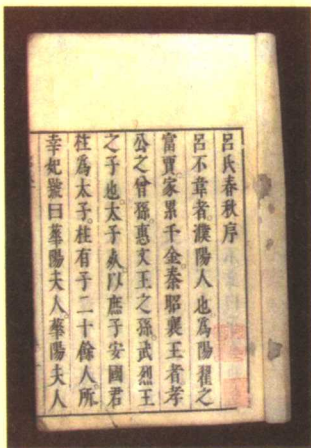 呂氏春秋序
呂不韋者。濮陽人也。爲陽翟之
富賈。家累千金。秦昭襄王者。孝
公之曾孫。惠文王之孫。武烈王
之子也。太子死。以庶子安國君
柱爲太子。柱有子二十餘人。所
幸妃號曰華陽夫人。華陽夫人